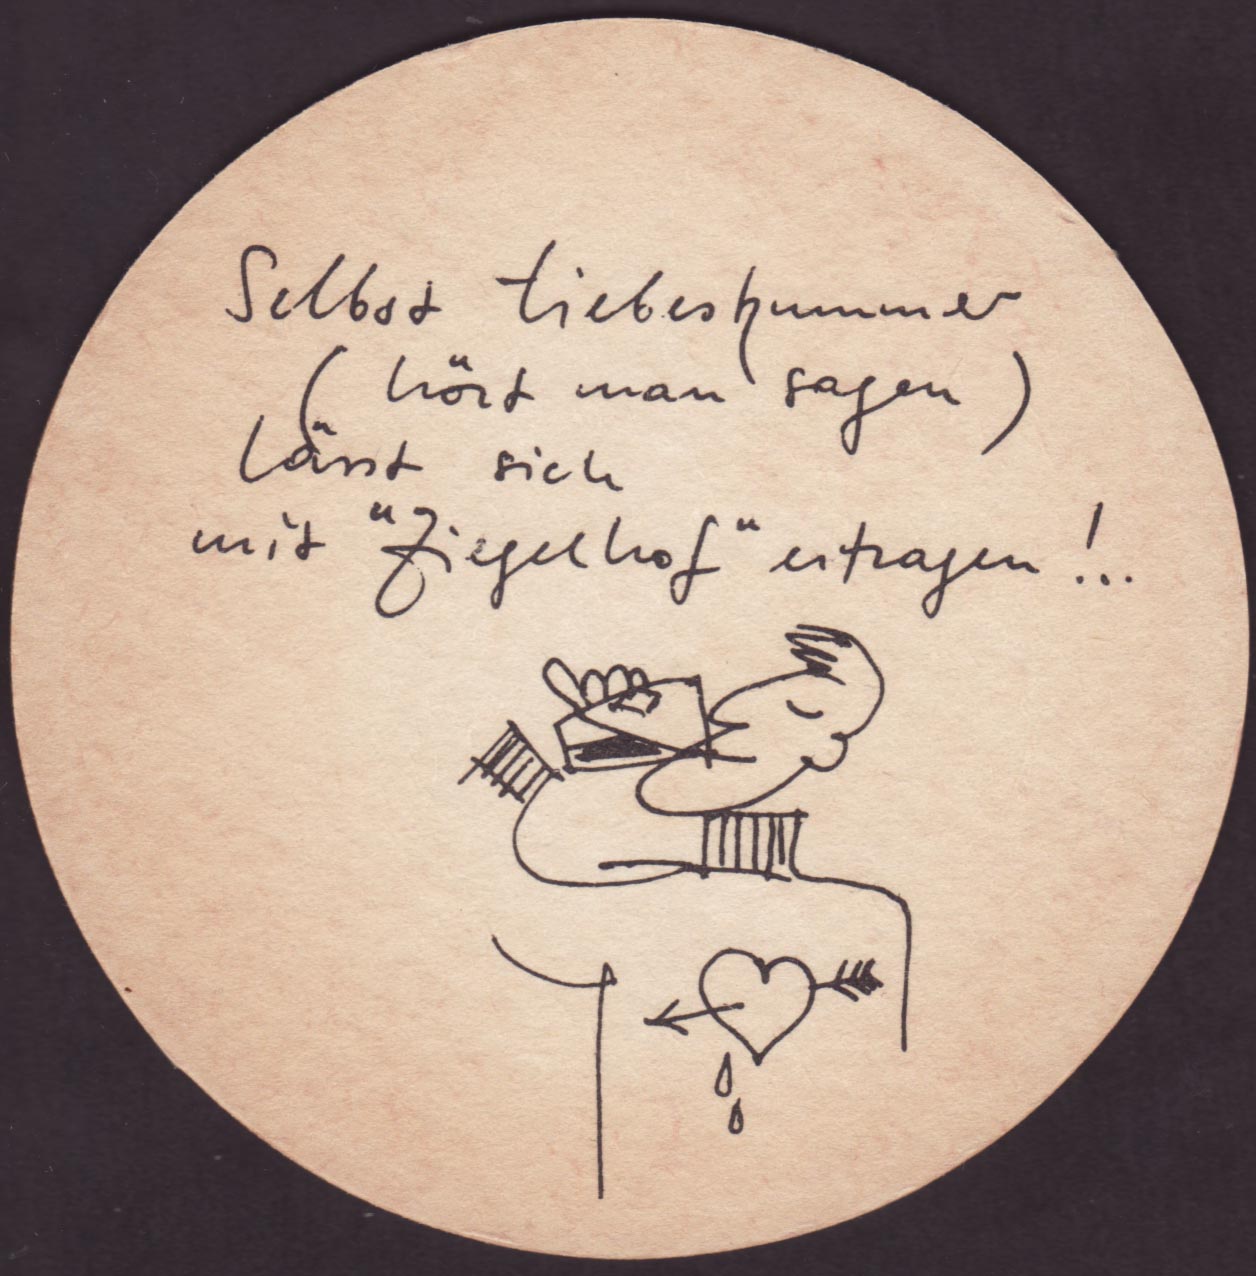 Selbst Liebeskummer
( hört man sagen )
lässt sich
mit "Ziegelhof" ertragen!...